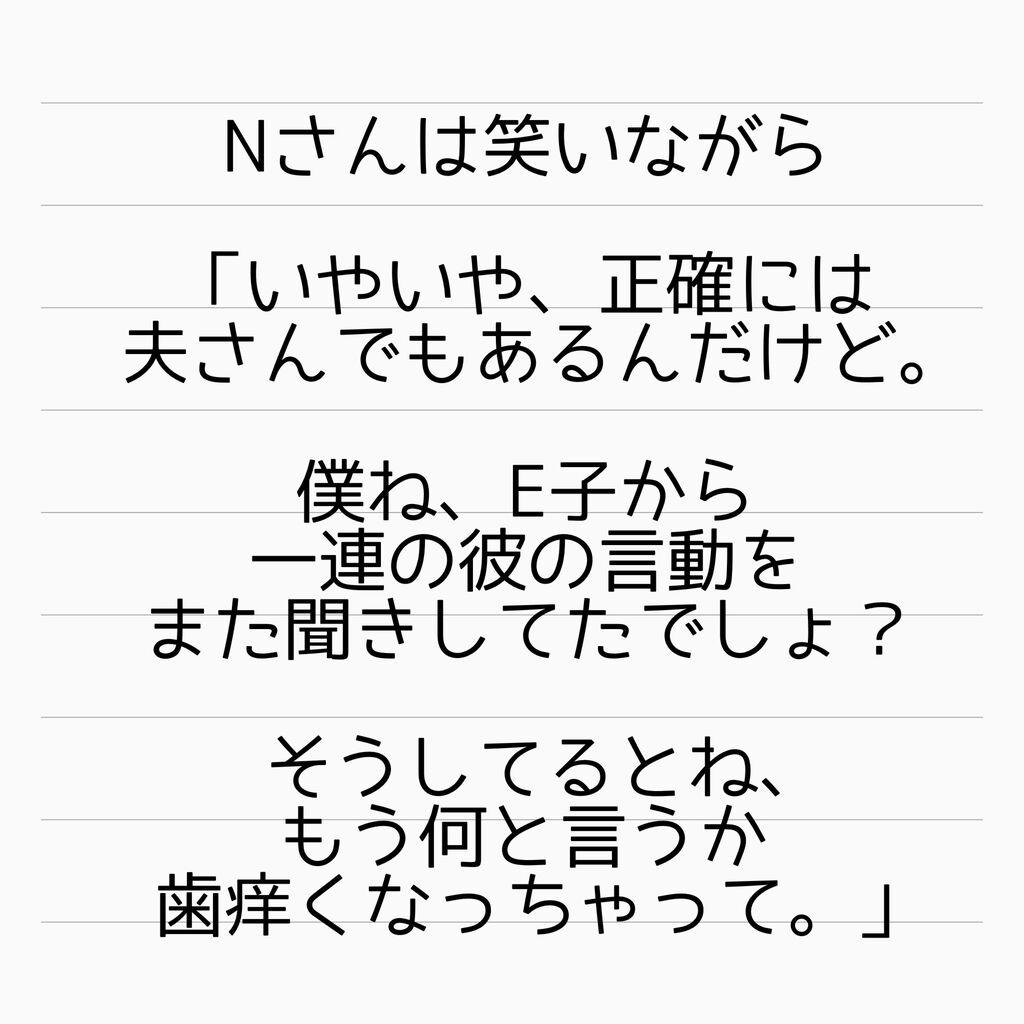 Nさんは笑いながら
「いやいや、正確には
夫さんでもあるんだけど。
僕ね、E子から
一連の彼の言動を
また聞きしてたでしょ？
そうしてるとね、
もう何と言うか
歯痒くなっちゃって。」